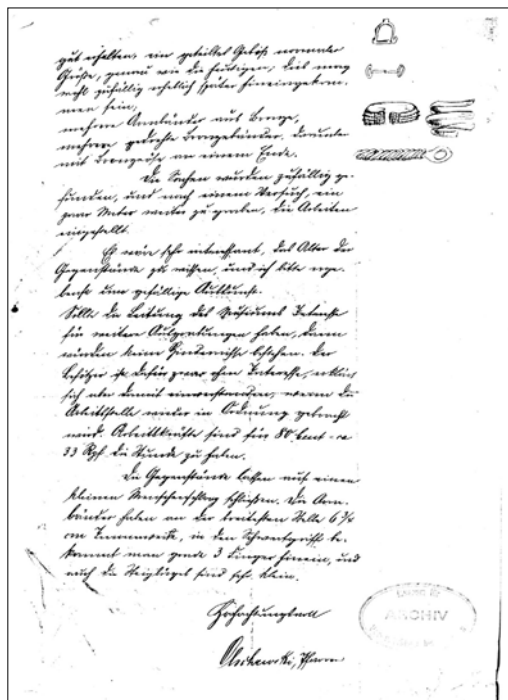 gut erhalten, ein geteiltes Gebiß normaler
Größe, genau wie die heutigen, dies mag
wohl zufällig erheblich später hineingekom-
men sein,
mehrere Armbänder aus Bronze,
mehrere gedrehte Bronzebänder, darunter
mit Bronzeöse an einem Ende.
Die Sachen wurden zufällig ge-
funden, und nach einem Versuch, ein
paar Meter weiter zu graben, die Arbeiten
eingestellt.
Es wäre sehr interessant, das Alter der
Gegenstände zu wissen, und ich bitte erge-
benst um gefällige Auskunft.
Sollte die Leitung des Museums Interesse
für weitere Ausgrabungen haben, dann
würden keine Hindernisse bestehen. Der
Besitzer ist dafür zwar ohne Interesse, erklärt
sich aber damit einverstanden, wenn die
Arbeitsstelle wieder in Ordnung gebracht
wird. Arbeitskräfte sind für 80 Cent = ca
33 Rpf. die Stunde zu haben.
Die Gegenstände lassen auf einen
kleinen Menschenschlag schließen. Die Arm-
bänder haben an der breitesten Stelle 6 3/4
cm Innenweite, in den Schwertgriff be-
kommt man grade 3 Finger hinein, und
auch die Steigbügel sind sehr klein.
Hochachtungsvoll
Pfarrer
ARCHIV